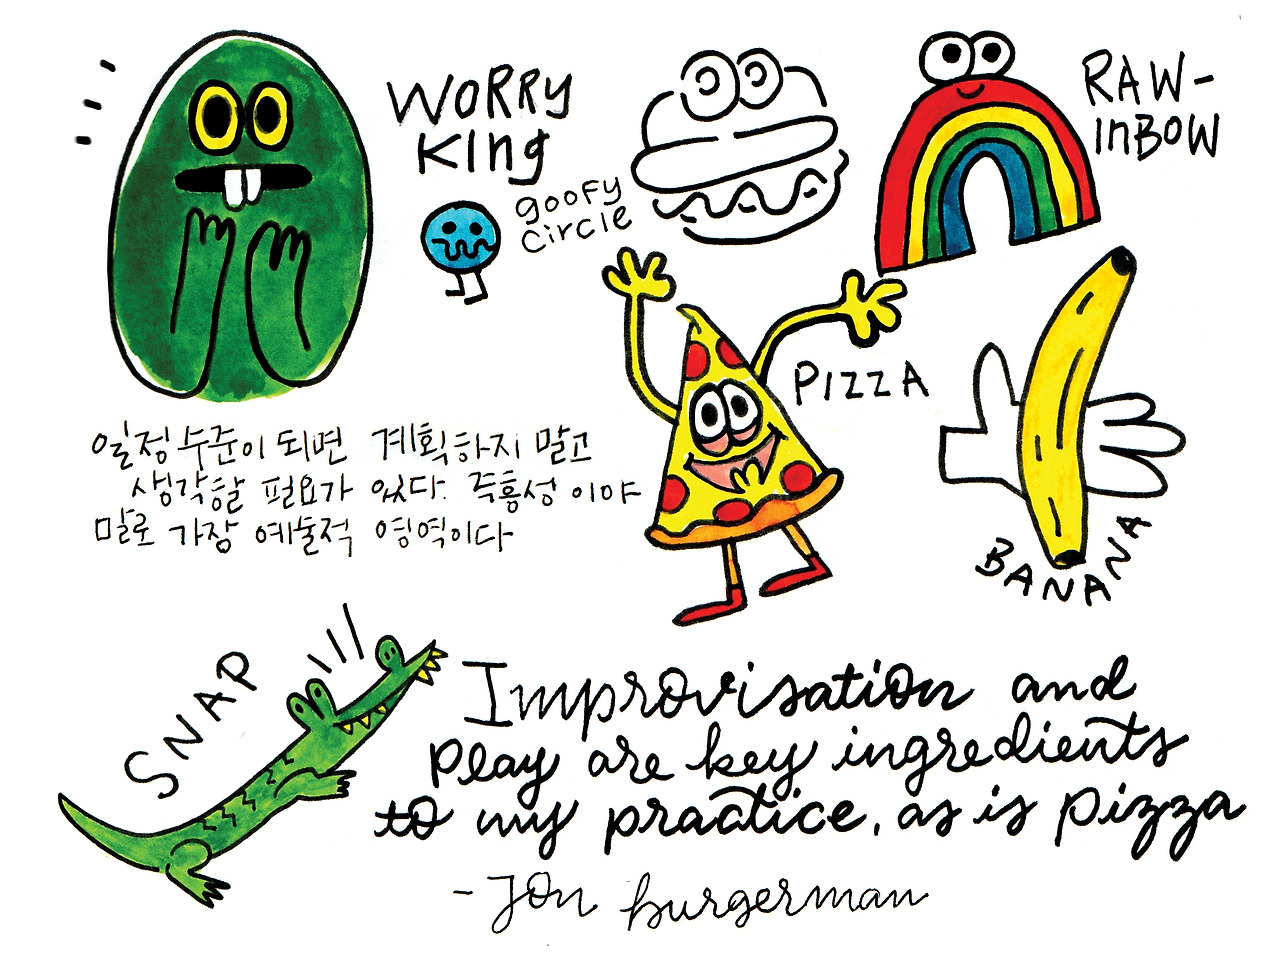 WORRY
KING
goofy
circle
RAW-
INBOW
PIZZA
BANANA
일정 수준이 되면 계획하지 말고
생각할 필요가 있다. 즉흥성 이야
말로 가장 예술적 영역이다
SNAP
Improvisation and
play are key ingredients
to my practice, as is pizza
- Jon burgerman